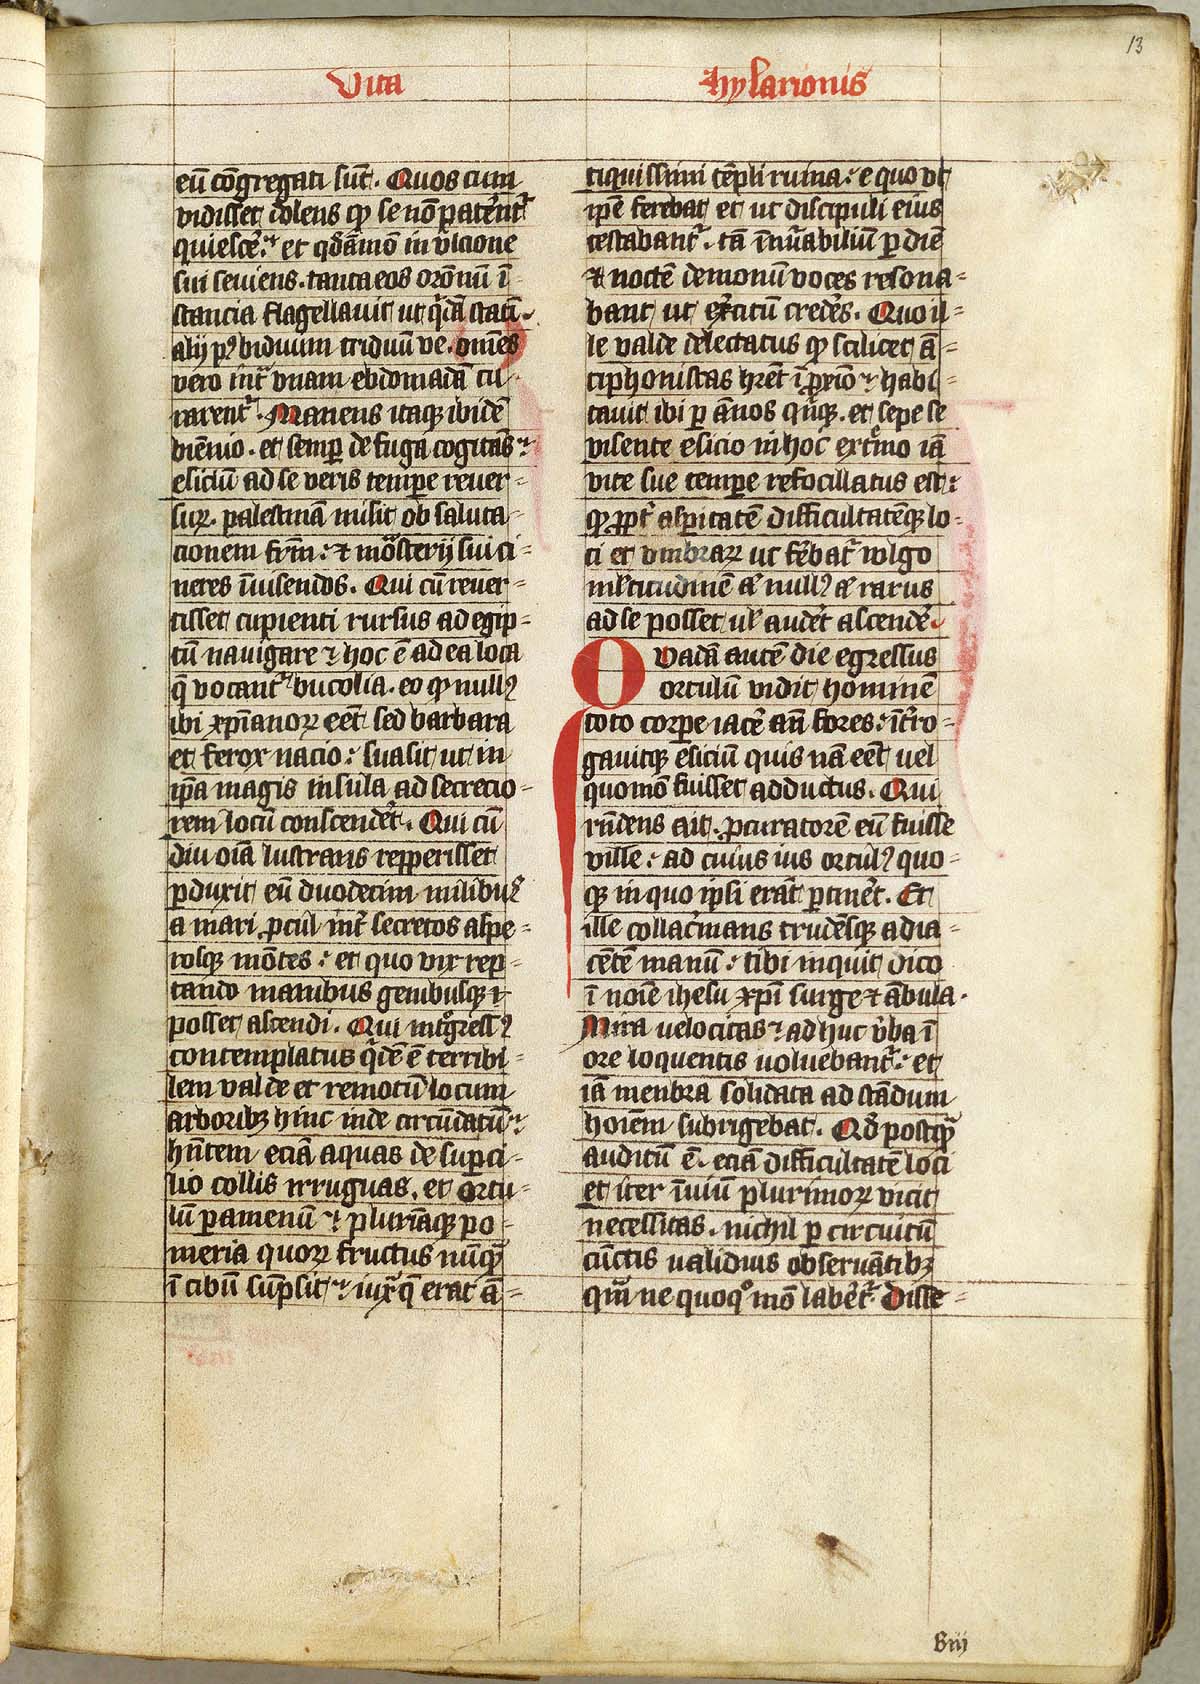 13
Vita
hylarionis
eū cōngregati sūt. Quos cum
vidisset dolens qͻ se nō patent᷑
quiesce᷑. et qᵈāmō in vlcione
sui seuiens. tanta eos oronū ī-
stancia flagellauit ut qᵈā stati.
alij pꝰ biduum triduū ve. om̄es
vero int᷑ vnam ebdomadā cu-
rarent᷑. Manens itaqꝫ ibidē
biēnio. et semꝑ de fuga cogitās
esiciū ad se veris tempere reuer-
suꝝ. palestinā misit ob saluta-
cionem frm̄: ⁊ mōsterij sui ci-
neres īuisendos. Qui cū reuer-
tisset cupienti rursus ad egip-
tū nauigare ⁊ hoc ē ad ea loca
q̄ vocant᷑ bucolia. eo qͻ nullꝰ
ibi xpianoꝝ eēt sed barbara
et ferox nacio: suasit ut in
ip̄a magis insula ad secrecio-
rem locū conscende᷑t. Qui cū
diu oīa lustrans repperisset
ꝑduxit eū duodecim milibuꝰ
a mari ꝓcul int᷑ secretos aspe-
rosqꝫ mōtes: et quo vix rep-
tando manibus genibusqꝫ
posset ascendi. Qui intgressꝰ
contemplatus q̇dē ē terribi-
lem valde et remotū locum
arboribꝫ hinc inde circūdatū
hn̄tem eciā aquas de suꝑci-
lio collis irruguas. et ortu-
lū ꝑamenū ⁊ pluriāqꝫ po-
meria quoꝝ fructus nūqꝫ
ī cibū sūpsit ⁊ iuxᵃ q̄ erat ā-
tiquissimi tēpli ruina: e quo vt
ip̄e ferebat et ut discipuli eius
testabant᷑. tā īnūabiliū ꝑ diē
⁊ noctē demonū voces resona-
bant ut ex᷑citū crede᷑s. Quo il-
le valde delectatus qͻ scilicet ā-
tiphonistas hret ī ꝓxīo ⁊ habi-
tauit ibi ꝑ ānos qⁱnqꝫ. et sepe se
visente esicio in hoc ext᷑mo iā
vite sue tempere refocillatus est:
qͻ ꝓpt᷑ asꝑitatē difficultatēqꝫ lo-
ci et vmbraꝝ ut fe᷑bat᷑ wlgo
ml̄titudinē aū nullꝰ aū rarus
ad se posset ul̄ aude᷑t ascende᷑
Quadā autē die egressus
ortulū vidit hominē
toto corpe iace᷑ an̄ fores: īt᷑ro-
gauitqꝫ esiciū quis nā eēt uel
quomō fuisset adductus. Qui
rn̄dens ait. ꝓcuratorē eū fuisse
ville: ad cuius ius ortulꝰ quo-
qꝫ in quo ipsi erāt ꝑtine᷑t. Et
ille collac᷑mans trudēsqꝫ adia-
cētē manū: tibi inquit dico
ī noīe ihesu xp̄i surge ⁊ ābula.
Mira uelocitas adhuc v᷑ba ī
ore loquentis uoluebant᷑: et
iā menbra solidata ad stādum
hoīem subrigebat. Qd̄ postqꝫ
auditū ē. eciā difficultatē loci
et iter īuiū plurimoꝝ vicit
necessitas. nichil ꝑ circuitū
cūctis validius obseruātibꝫ
qm̄ ne quoqͦ mō labe᷑t᷑ Disse-
Biij